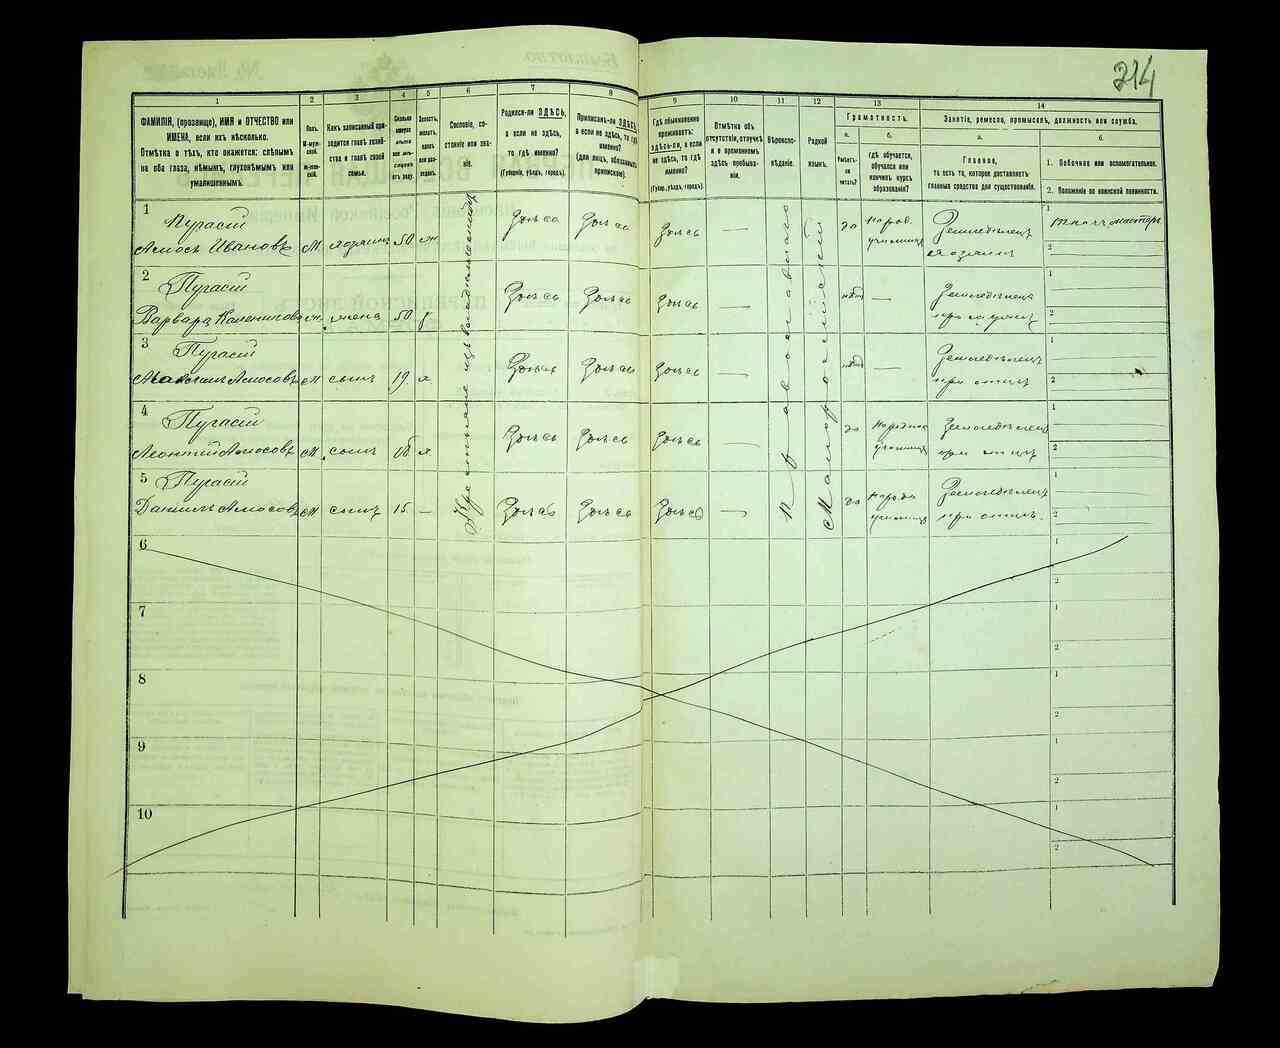 214
1 2 3 4 5 6 7 8 9 10 11 12 13 14
ФАМИЛІЯ, (прозвище), ИМЯ и ОТЧЕСТВО или
ИМЕНА, если ихъ нѣсколько.
Отмѣтка о тѣхъ, кто окажется: слѣпымъ
на оба глаза, нѣмымъ, глухонѣмымъ или
умалишеннымъ.
Полъ.
М-муж-
ской.
Ж-жен-
скій.
Какъ записанный при-
ходится главѣ хозяй-
ства и главѣ своей
семьи.
Сословіе, со-
стояніе или зва-
ніе.
Родился-ли ЗДѢСЬ,
а если не здѣсь,
то гдѣ именно?
(Губернія, уѣздъ, городъ).
Приписанъ-ли ЗДѢСЬ,
а если не здѣсь, то гдѣ
именно?
(для лицъ, обязанныхъ
припискою).
Гдѣ обыкновенно
проживаетъ:
здѣсь-ли, а если
не здѣсь, то гдѣ
именно?
(Губер., уѣздъ, городъ).
Отмѣтка объ
отсутствіи, отлучкѣ
и о временномъ
здѣсь пребыва-
ніи.
Вѣроиспо-
вѣданіе.
Родной
языкъ.
Грамотность.
а.
Умѣетъ-
ли
читать?
б.
гдѣ обучается,
обучался или
кончилъ курсъ
образованія?
Занятіе, ремесло, промыселъ, должность или служба.
а.
Главное,
то есть то, которое доставляетъ
главныя средства для существованія.
б.
1. Побочное или вспомогательное.
2. Положеніе по воинской повинности.
Крестьяне
Православнаго
Малороссійскій
1
Пугасій
Амосъ Ивановъ М хозяинъ 50 ж Здѣсь Здѣсь Здѣсь — да Народ. училищѣ Земледѣлецъ хозяинъ
1
2
2
Пугасій
Варвара ж. жена 50 Здѣсь Здѣсь Здѣсь — нѣтъ — при мужѣ
1
2
3
Пугасій
Максимъ Амосовъ М сынъ 19 х Здѣсь Здѣсь Здѣсь — нѣтъ — Земледѣлецъ при отцѣ
1
2
4
Пугасій
Леонтій Амосовъ М. сынъ х Здѣсь Здѣсь Здѣсь — да Народно училищѣ Земледѣлецъ при отцѣ
1
2
5
Пугасій
Даніилъ Амосовъ М сынъ 15 — Здѣсь Здѣсь Здѣсь — да Народн училищѣ Земледѣлецъ при отцѣ.
1
2
6
1
2
7
1
2
8
1
2
9
1
2
10
1
2